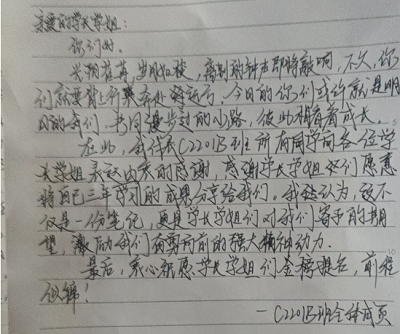 亲爱的学长学姐：
你们好。
长期在莫，岁月如梭，离别的钟声即将敲响，不久，你
们就要背上行囊奔赴远方，今日的你们或许就是明
日的我们，共同漫步过的小路，彼此相看着成长。
在此，我代表C2201B班所有同学向各位学
长学姐表以由衷的感谢，感谢学长学姐你们愿意
将自己三年学习的成果分享给我们。我想认为，这不
仅是一份笔记，更是学长学姐们对我们寄予的期
望，激励我们勇前的强大精神动力。
最后，衷心祝愿学长学姐们金榜题名，前程
似锦！
—C2201B班全体成员